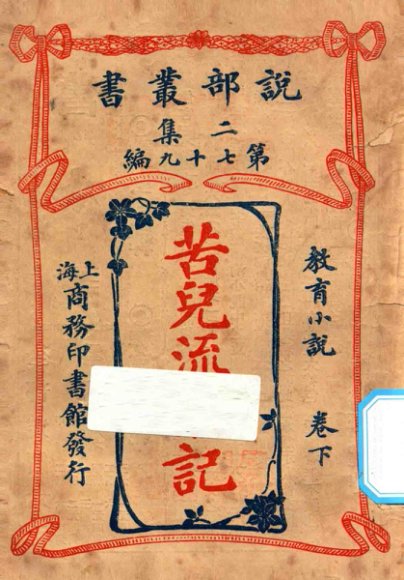 說部叢書
二集
第七十九編
教育小說 卷下
苦兒流
記
上海商務印書館發行